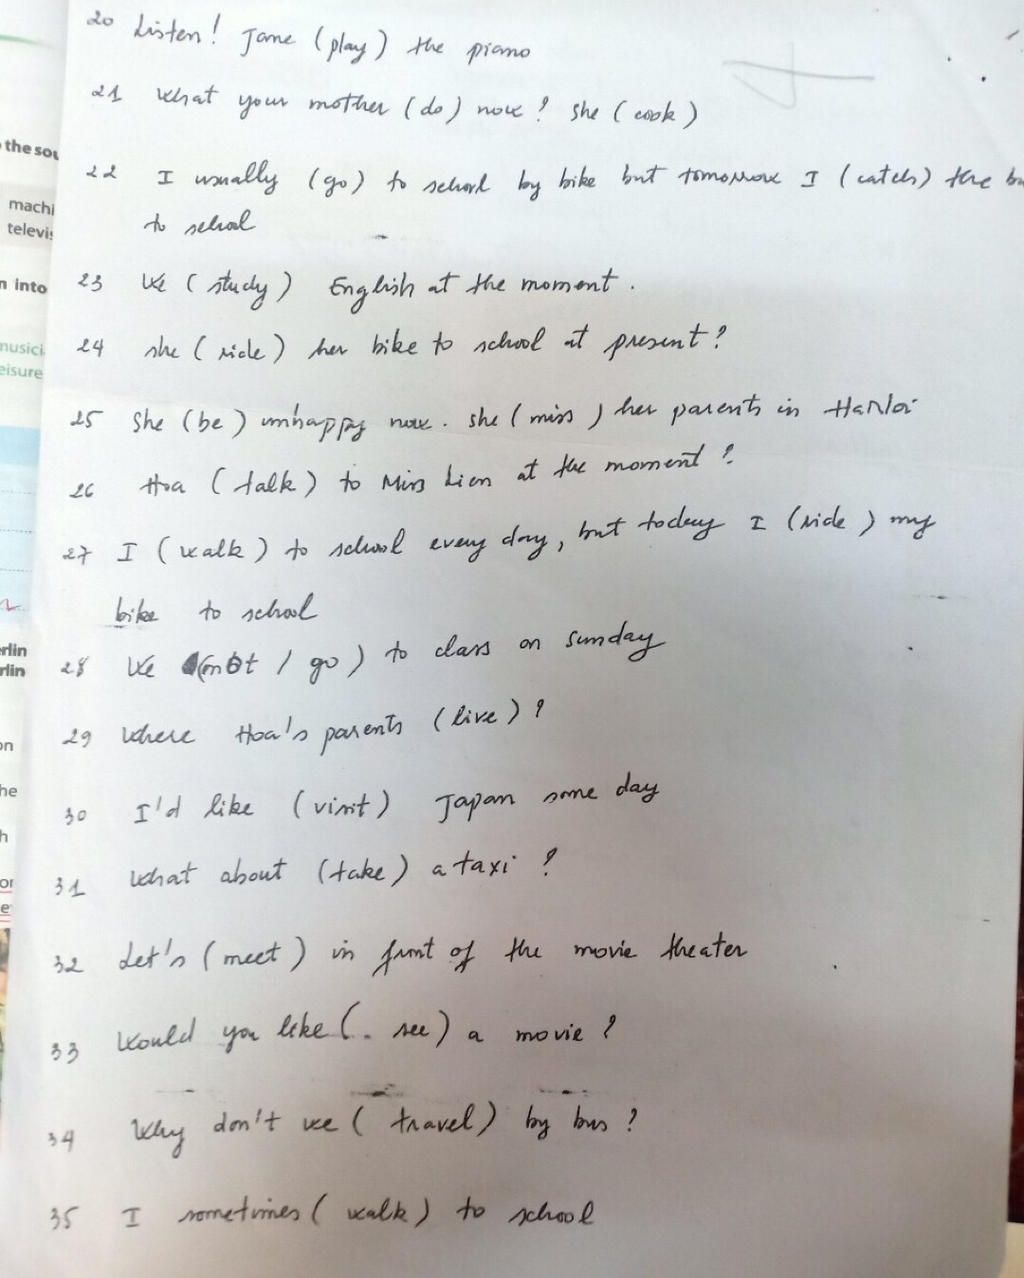 20 Listen! Jane (play) the piano
21 What your mother (do) now? She (cook)
the sou
22 I usually (go) to school by bike but tomorrow I (catch) the bu
machi
televis
to school
n into
23 We (study) English at the moment.
24 she (ride) her bike to school at present?
musici
eisure
25 She (be) unhappy now. she (miss) her parents in HaNoi
26 Hoa (talk) to Miss Lien at the moment?
27 I (walk) to school every day, but today I (ride) my
bike to school
28 We (not / go) to class on Sunday
rlin
rlin
29 Where Hoa's parents (live)?
on
he
30 I'd like (visit) Japan some day
h
31 What about (take) a taxi?
or
e
32 Let's (meet) in front of the movie theater
33 Would you like (.. see) a movie?
34 Why don't we (travel) by bus?
35 I sometimes (walk) to school